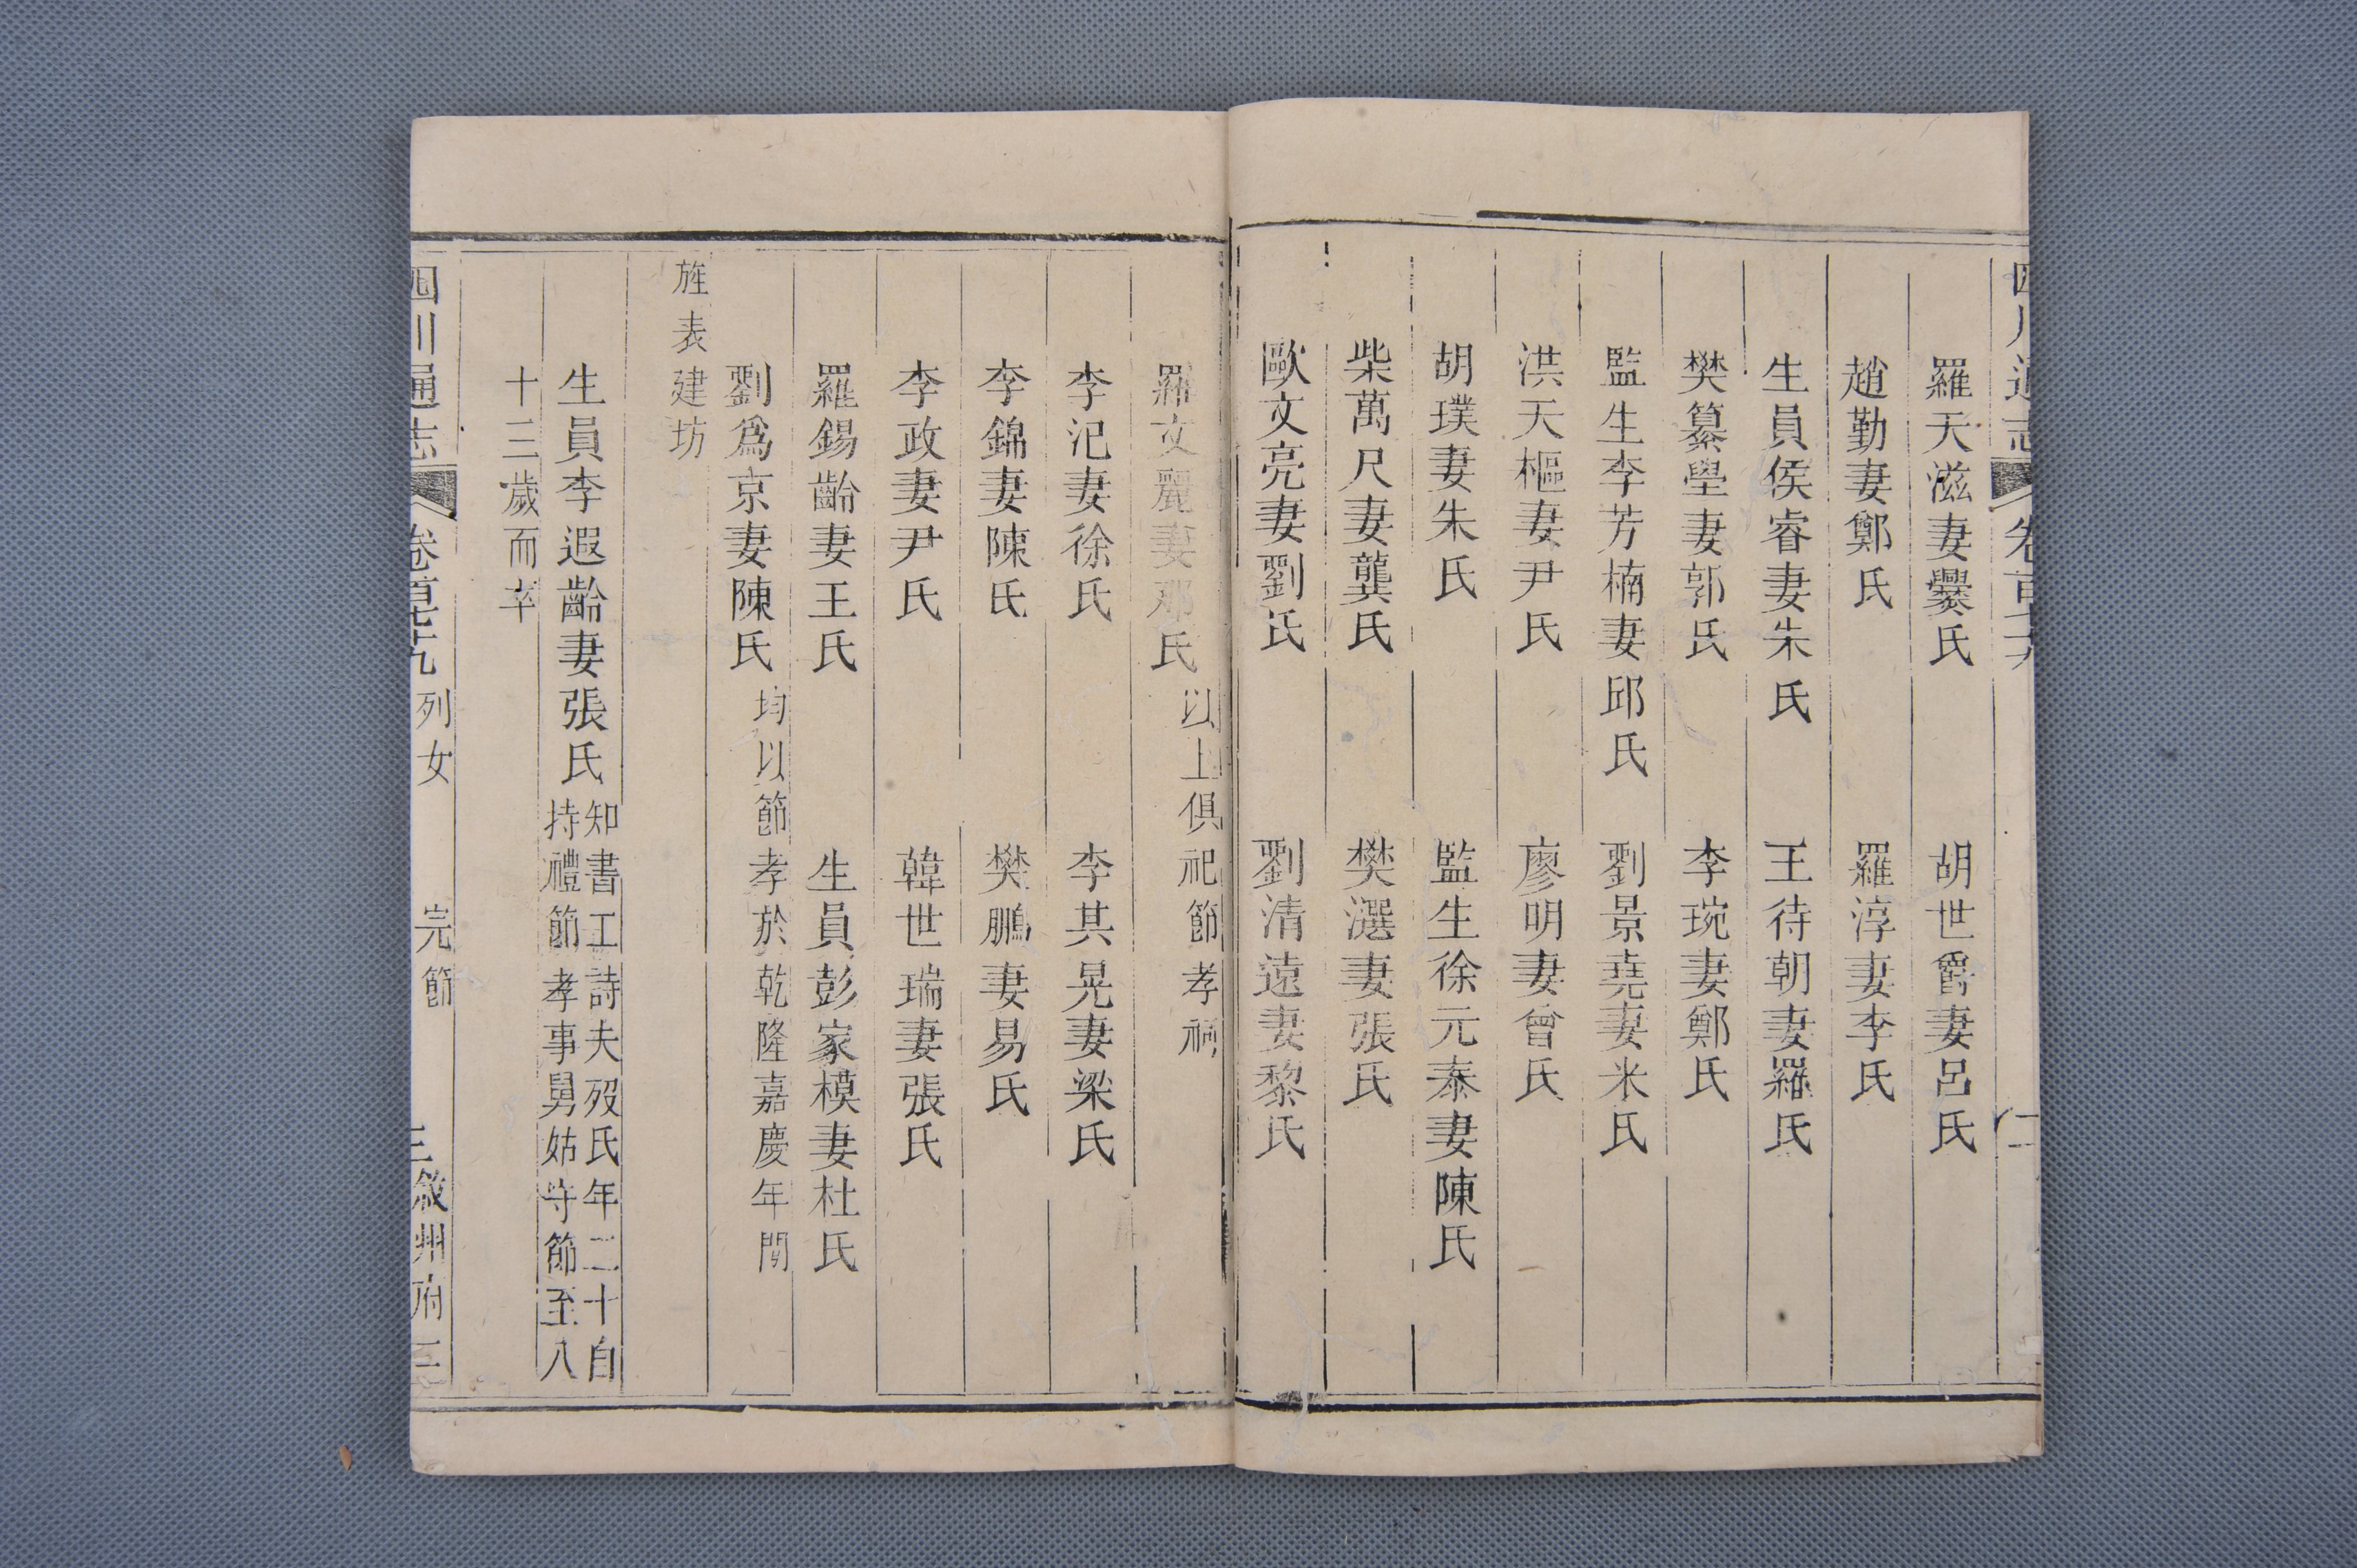 羅天滋妻爨氏　胡世爵妻呂氏
趙勤妻鄭氏　羅淳妻李氏
生員侯睿妻朱氏　王待朝妻羅氏
樊纂壆妻郭氏　李琬妻鄭氏
監生李芳楠妻邱氏　劉景堯妻米氏
洪天樞妻尹氏　廖明妻曾氏
胡璞妻朱氏　監生徐元泰妻陳氏
柴萬尺妻龔氏　樊選妻張氏
歐文亮妻劉氏　劉清遠妻黎氏
羅文麗妻鄢氏以上俱祀節孝祠
李汜妻徐氏　李其晃妻梁氏
李錦妻陳氏　樊鵬妻易氏
李政妻尹氏　韓世瑞妻張氏
羅錫齡妻王氏　生員彭家模妻杜氏
劉爲京妻陳氏均以節孝於乾隆嘉慶年間
旌表建坊
生員李遐齡妻張氏知書工詩夫歿氏年二十自
持禮節孝事舅姑守節至八
十三歲而卒
四川通志　列女　完節　敘州府三